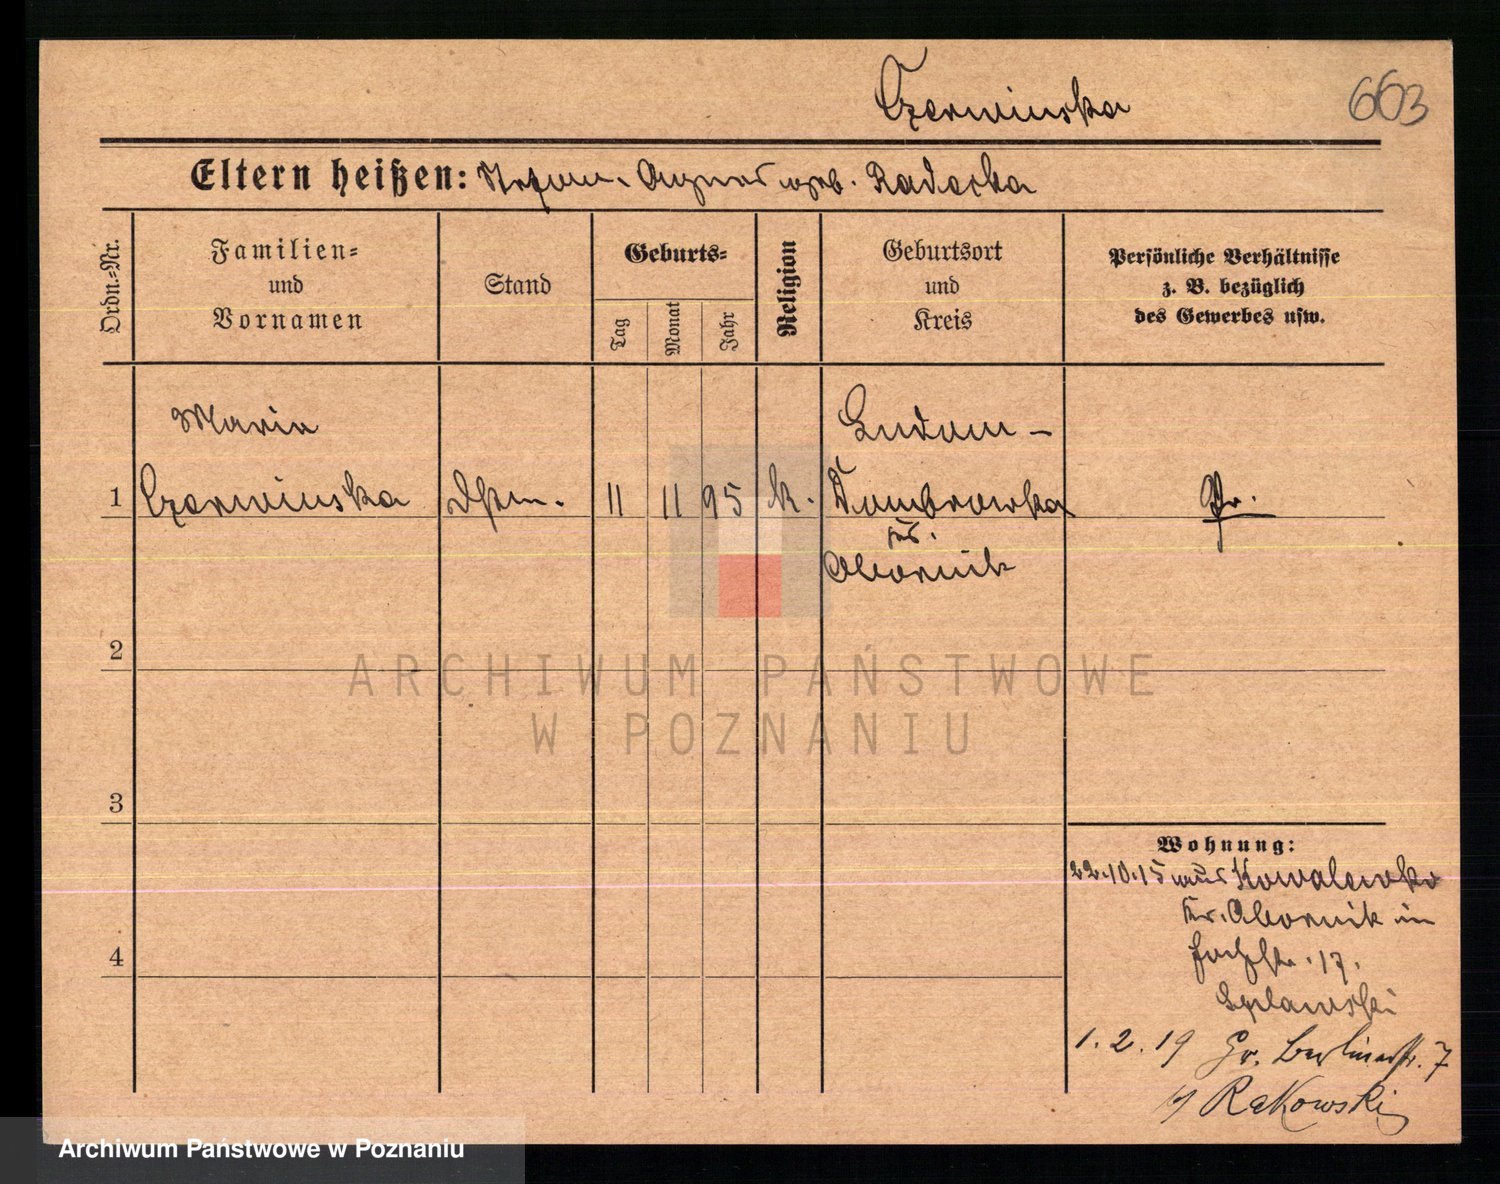 Czerwinska
663
Eltern heißen: Stefan. Agnes geb. Radecka
Ordn.-Nr.
Familien-
und
Vornamen
Stand
Geburts-
Tag
Monat
Jahr
Religion
Geburtsort
und
Kreis
Persönliche Verhältnisse
z. B. bezüglich
des Gewerbes usw.
Maria
Ludom -
1 Czerwinska 11 11 95 k. Dombrowka Pr.
Kr.
Obornik
2
3
4
Wohnung:
22.10.15 aus Kowalewko
Kr. Obornik in
17.
1.2.19 Gr. Berlinerstr. 7
b/ Rakowski
ARCHIWUM PAŃSTWOWE
W POZNANIU
Archiwum Państwowe w Poznaniu